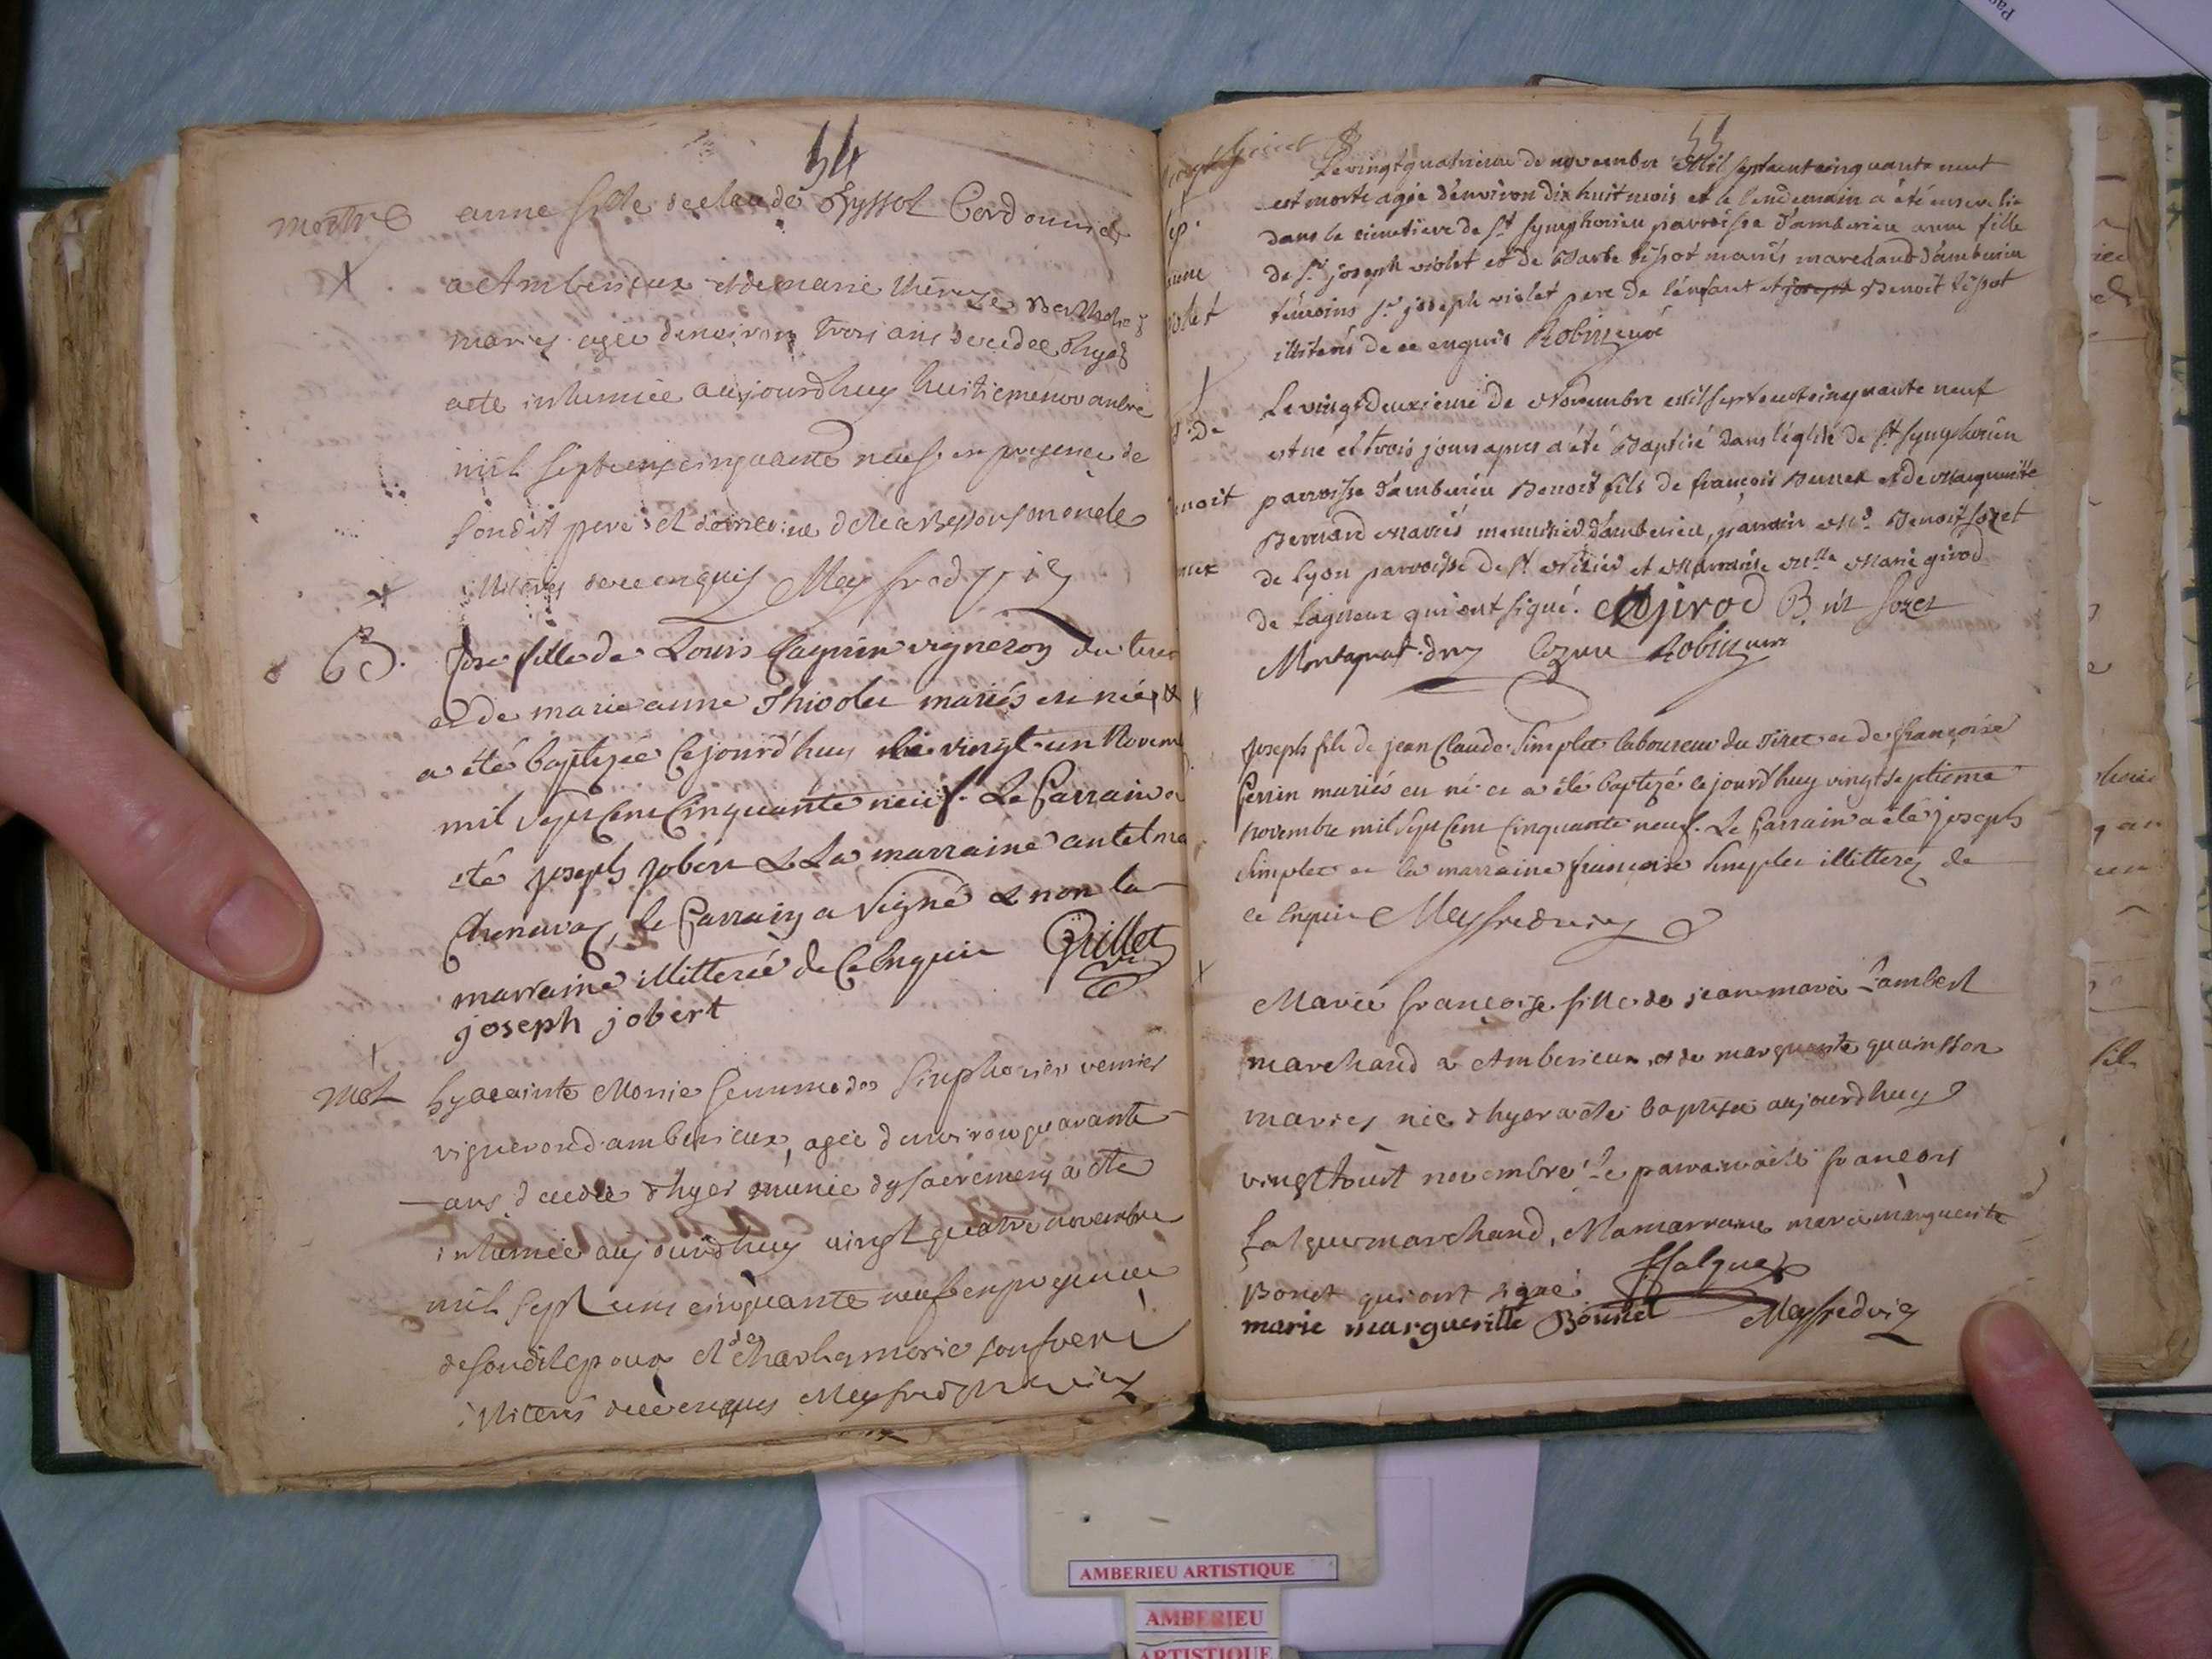 54
morte
anne fille de claude Tyssot Cordonnier
a Amberieux et de marie therese
mariés agée denviron trois ans decedée dhyer
aeté inhumée aujourdhuy huitieme novanbre
mil septcens cinquante neuf en presence de
sondit pere et
illiterés de ce enquis Meyfred vic
B.
fille de Louis Cagnin vigneron du tiret
et de marie anne Thivolet mariés est née et
a été baptizée cejourd'huy le vingt un Novem
mil Sept Cent Cinquante neuf. Le Parrain a
été joseph jobert & La marraine antelme
Chenavaz, le Parrain a signé & non la
marraine illitterée de Ce Enquise Grillet vic
joseph jobert
mort
hyacainte Morie femme de Simphorien vernier
vigneron d'amberieux, agée d'environ quarante
ans, decedée d'hyer munie des sacremens a eté
inhumée aujourdhuy vingt quatre novembre
mil sept cens cinquante neuf en presence
de son dit epoux et de Charles morie son frere
illiterés de ce enquis Meyfred vic
55
Le vingt quatrieme de novembre Mil septcent cinquante neuf
est morte agée d'environ dix huit mois et le lendemain a été ensevelie
dans le cimetiere de St Symphorien parroisse d'amberieu anne fille
de Sr joseph violet et de Barbe tissot mariés marchand d'amberieu
témoins Sr joseph violet pere de l'enfant et joseph Benoit tissot
illiterés de ce enquis Robin curé
Le vingt deuxieme de Novembre mil septcent cinquante neuf
est né et trois jours apres a été Baptisé dans l'église de St Symphorien
parroisse d'amberieu Benoit fils de françois Bunex et de Marguerite
Bernard Mariés menuisier d'amberieu, parrain Mr Benoit sozet
de lyon parroisse de St Nizier et Marraine Mlle Marie girod
de Lagnieux qui ont signé. M girod B. sozet
Montagnat Robin curé
Joseph fils de jean Claude Simplet laboureur du Tiret et de françoise
Perrin mariés est né et a été baptizé cejourd'huy vingt septieme
Novembre mil Sept Cent Cinquante neuf. Le Parrain a été joseph
Simplet et la marraine françoise Simplet illitterés de
ce Enquis Meyfred vic
Marie françoise fille de jean marie Lambert
marchand a Amberieux et de marguerite guainsson
mariés née d'hyer a été baptisée aujourdhuy
vingt huit novembre Le parrain a été françois
falque marchand, et la marraine marie marguerite
Bonet qui ont signé. F falque
marie marguerite Bonnet Meyfred vic
AMBERIEU ARTISTIQUE
AMBERIEU
ARTISTIQUE